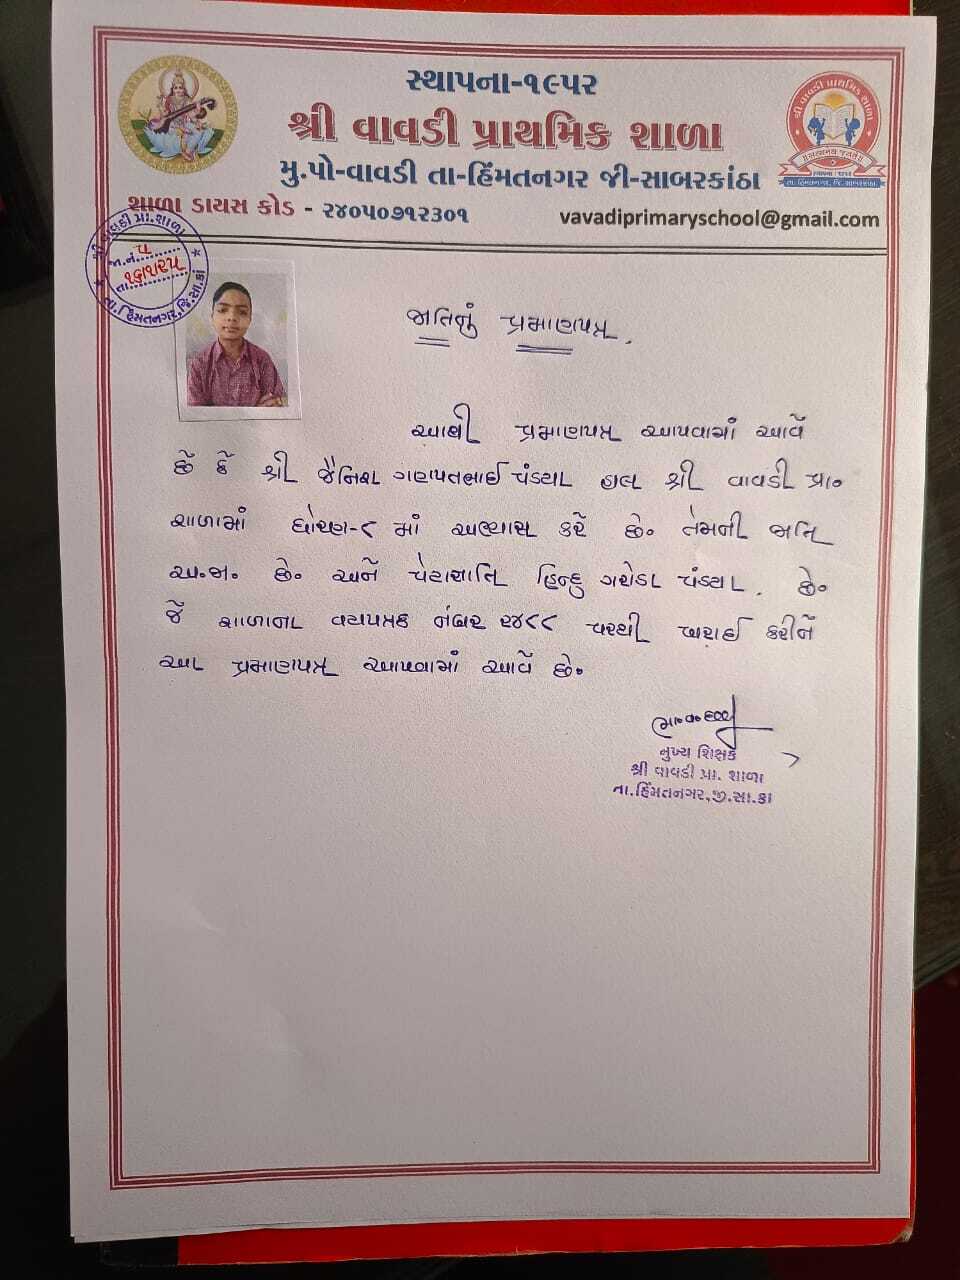 સ્થાપના-૧૯૫૨
શ્રી વાવડી પ્રાથમિક શાળા
મુ.પો-વાવડી તા-હિંમતનગર જી-સાબરકાંઠા
શાળા ડાયસ કોડ - ૨૪૦૫૦૭૧૨૩૦૧
vavadiprimaryschool@gmail.com
શ્રી વાવડી પ્રા.શાળા
જા.નં. ૫
તા.
તા.હિંમતનગર,જિ.સા.કાં
જાતિનું પ્રમાણપત્ર.
આથી પ્રમાણપત્ર આપવામાં આવે
છે કે શ્રી જૈનિશ ગણપતભાઈ પંડ્યા હાલ શ્રી વાવડી પ્રા૦
શાળામાં ધોરણ-૮ માં અભ્યાસ કરે છે૦ તેમની જાતિ
સા.શૈ. છે૦ અને પેટાજ્ઞાતિ હિન્દુ ગરોડા પંડ્યા. છે૦
જે શાળાના વયપત્રક નંબર ૨૪૮૮ પરથી ખરાઈ કરીને
આ પ્રમાણપત્ર આપવામાં આવે છે૦
મુખ્ય શિક્ષક
શ્રી વાવડી પ્રા. શાળા
તા.હિંમતનગર,જી.સા.કા